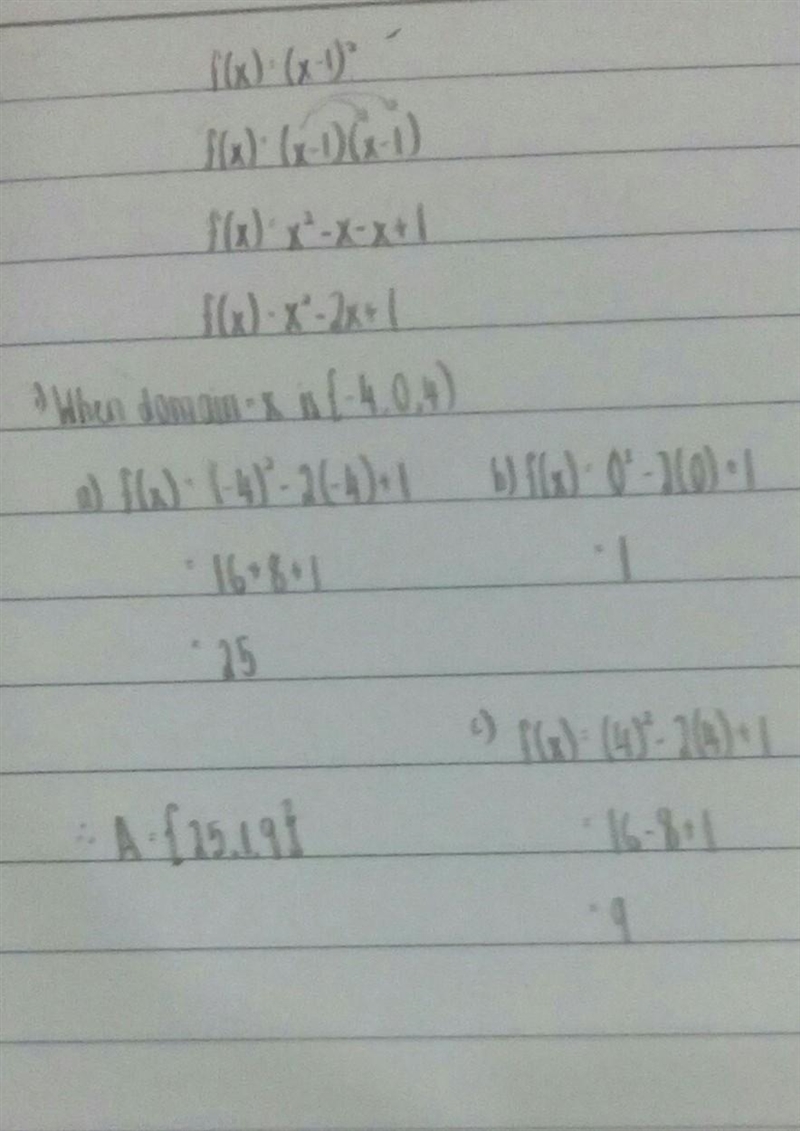 f(x) = (x-1)²
f(x) = (x-1)(x-1)
f(x) = x² - x - x + 1
f(x) = x² - 2x + 1
When domain = x is {-4, 0, 4}
a) f(x) = (-4)² - 2(-4) + 1
b) f(x) = 0² - 2(0) + 1
= 16 + 8 + 1
= 1
= 25
c) f(x) = (4)² - 2(4) + 1
∴ A = {25, 1, 9}
= 16 - 8 + 1
= 9